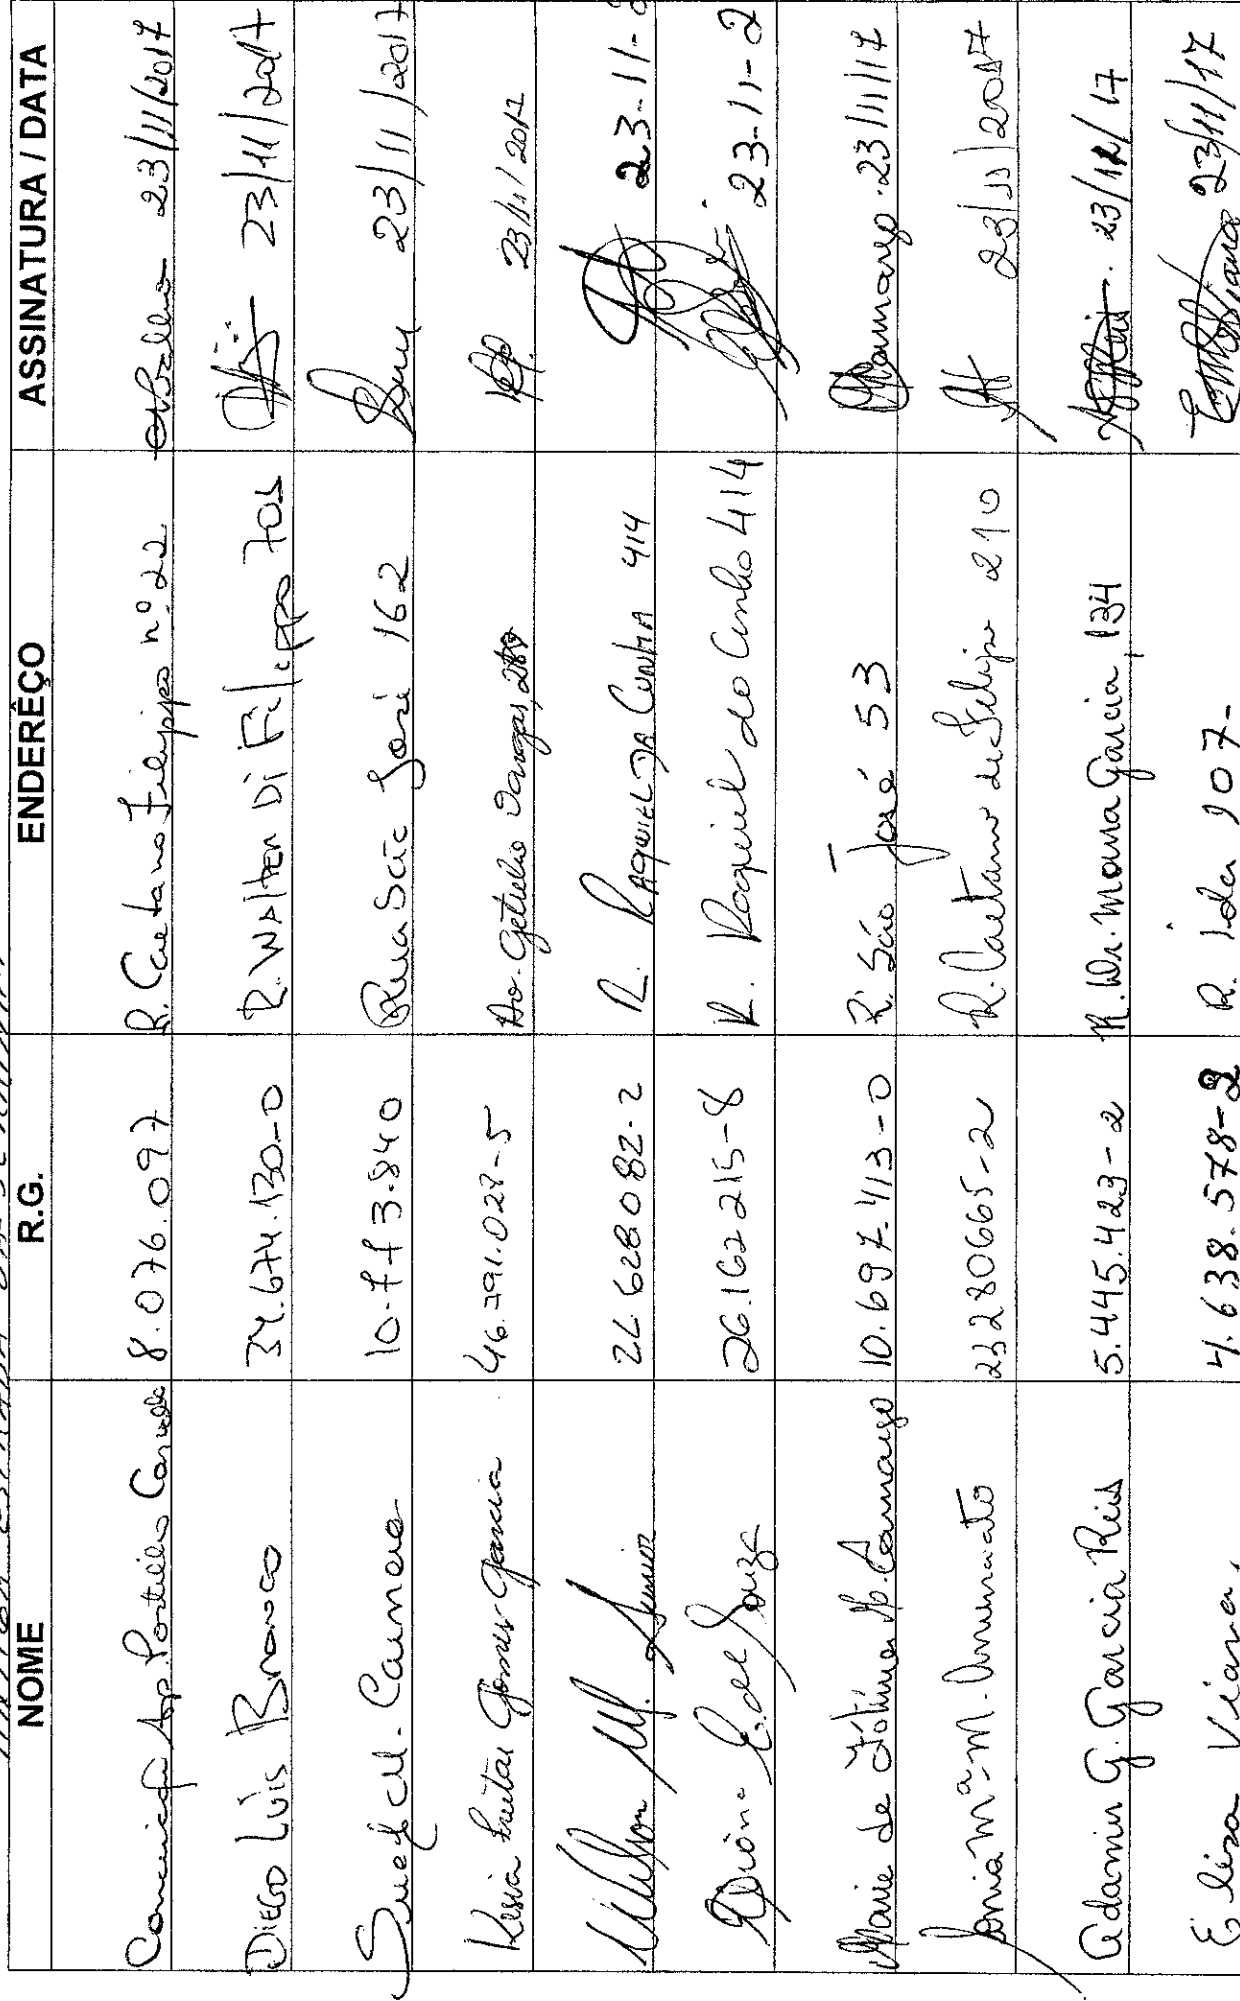 NOME R.G. ENDERÊÇO ASSINATURA / DATA
Conceição Ap. Portillo 8.076.097 R. Caetano Filippo nº 22 23/11/2017
DIEGO LUIS BRANCO 34.674.130-0 R. WALTER Di Filippo 705 23/11/2017
Camara 10.773.840 Rua São José 162 23/11/2017
Kesia Freitas Gomes Garcia 46.291.028-5 Av. Getulio Vargas, 23/11/2017
Wilson M. Junior 22.628082-2 R. RAQUIEL DA CUNHA 414 23-11-2
E. de Souza 26.162215-8 R. Raquiel da Cunha 414 23-11-2
Maria de Fátima M. Camargo 10.697.413-0 R. São José 53 Camargo 23/11/17
Sonia Mª M. Anunciato 23280665-2 R. Caetano de Felipo 210 23/11/2017
Adamir G. Garcia Reis 5.445.423-2 R. Dr. Moura Garcia, 134 23/11/17
Elisa Viana. 4.638.578-2 R. Ida 107- 23/11/17